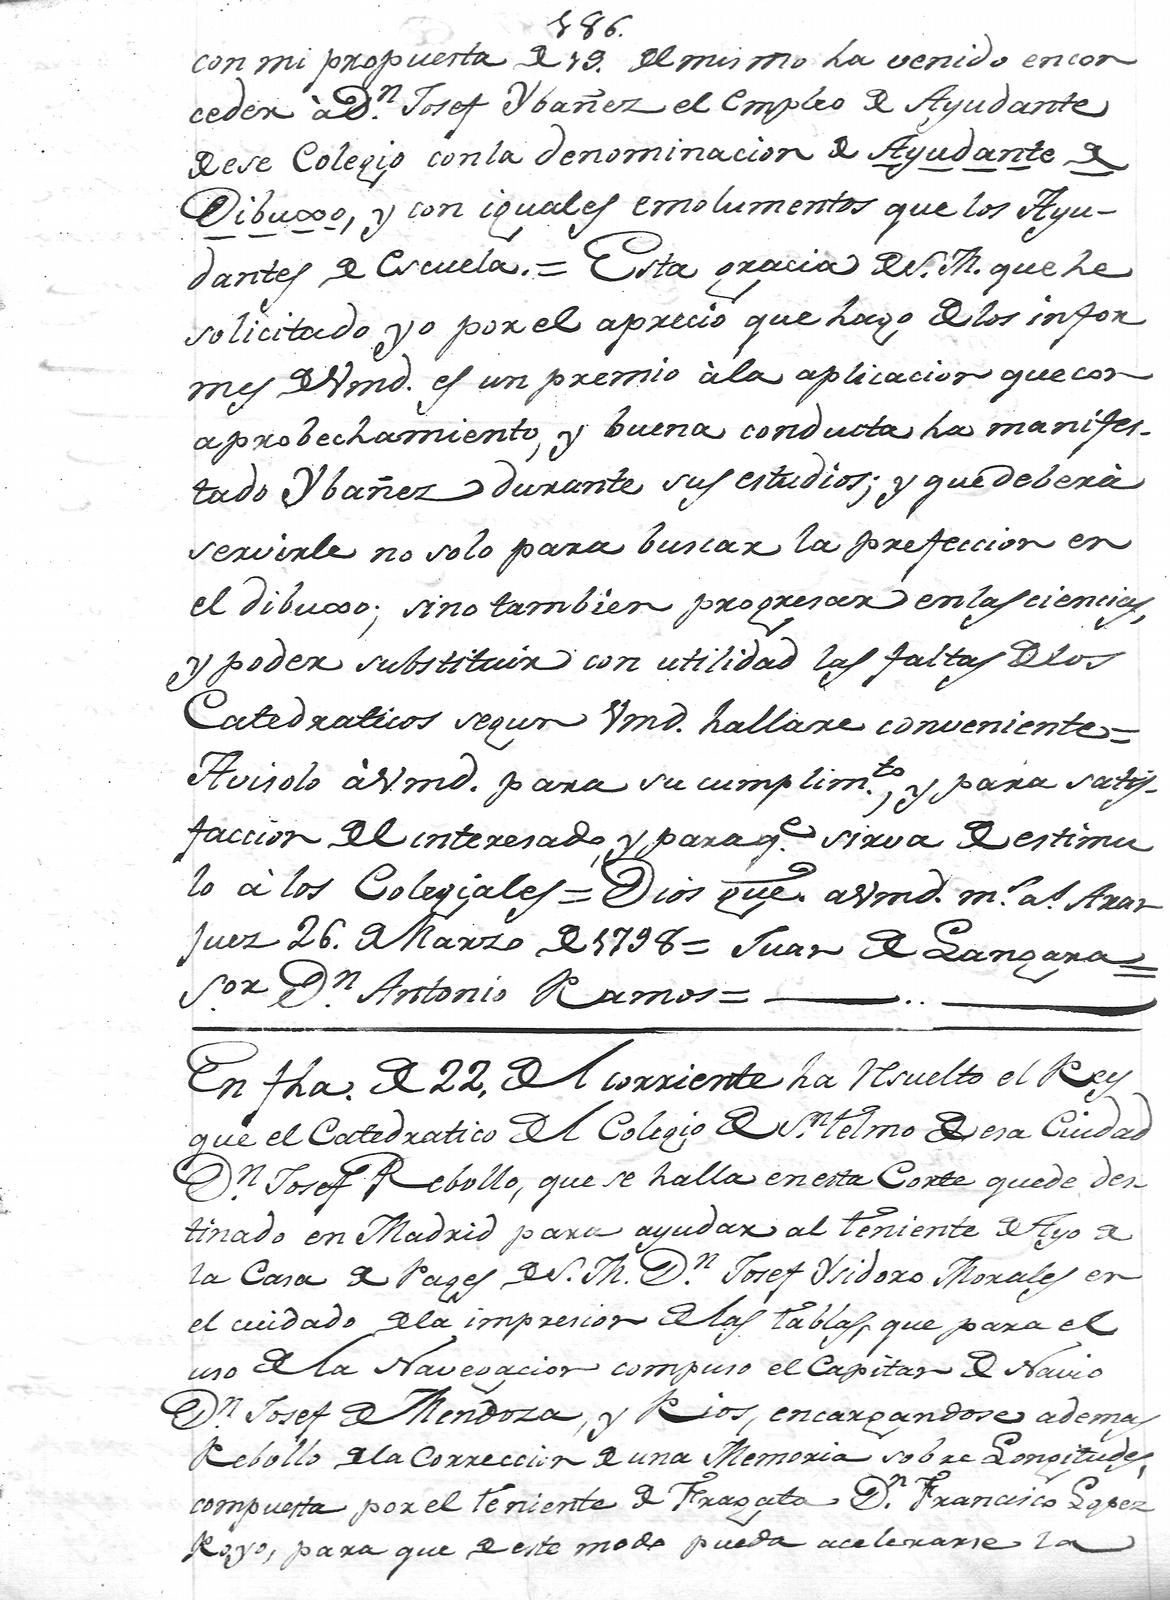 186.
con mi propuesta de 19. del mismo ha venido en con
ceder à Dn. Josef Ybañez el Empleo de Ayudante
de ese Colegio con la denominacion de Ayudante de
Dibuxo, y con iguales emolumentos que los Ayu-
dantes de Escuela.= Esta gracia de S. M. que he
solicitado yo por el aprecio que hago de los infor
mes de Vmd. es un premio à la aplicacion que con
aprobechamiento, y buena conducta ha manifes-
tado Ybañez durante sus estudios; y que deberà
servirle no solo para buscar la prefeccion en
el dibuxo; sino tambien progresar en las ciencias,
y poder substituir con utilidad las faltas de los
Catedraticos segun Vmd. hallare conveniente=
Avisolo à Vmd. para su cumplim.to, y para satis-
faccion del interesado, y para q.e sirva de estimu
lo à los Colegiales= Dios gue. a Vmd. m.s a.s Aran
juez 26. de Marzo de 1798= Juan de Langara=
S.or Dn. Antonio Ramos=
En fha. de 22, del corriente ha resuelto el Rey
que el Catedratico del Colegio de Sn. telmo de esa Ciudad
Dn. Josef Rebollo, que se halla en esta Corte quede des-
tinado en Madrid para ayudar al teniente de Ayo de
la Casa de Pages de S. M. Dn. Josef Ysidoro Morales en
el cuidado de la impresion de las tablas, que para el
uso de la Navegacion compuso el Capitan de Navio
Dn. Josef de Mendoza, y Rios, encargandose ademas
Rebollo de la Correccion de una Memoria sobre Longitudes,
compuesta por el teniente de Fragata Dn. Francisco Lopez
Royo, para que de este modo pueda acelerarse la